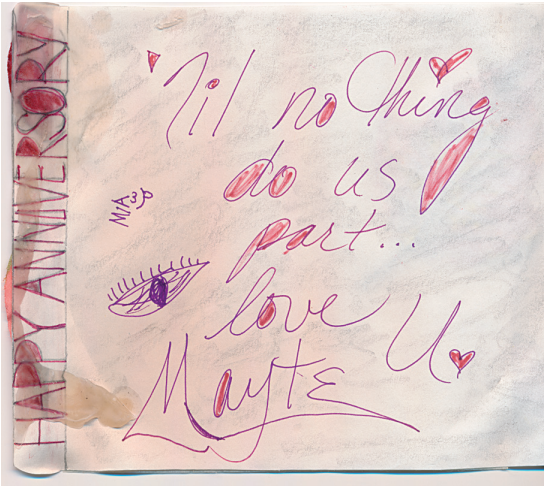 HAPPY ANNIVERSORY
'Til no thing
do us
part...
love U
Mayte